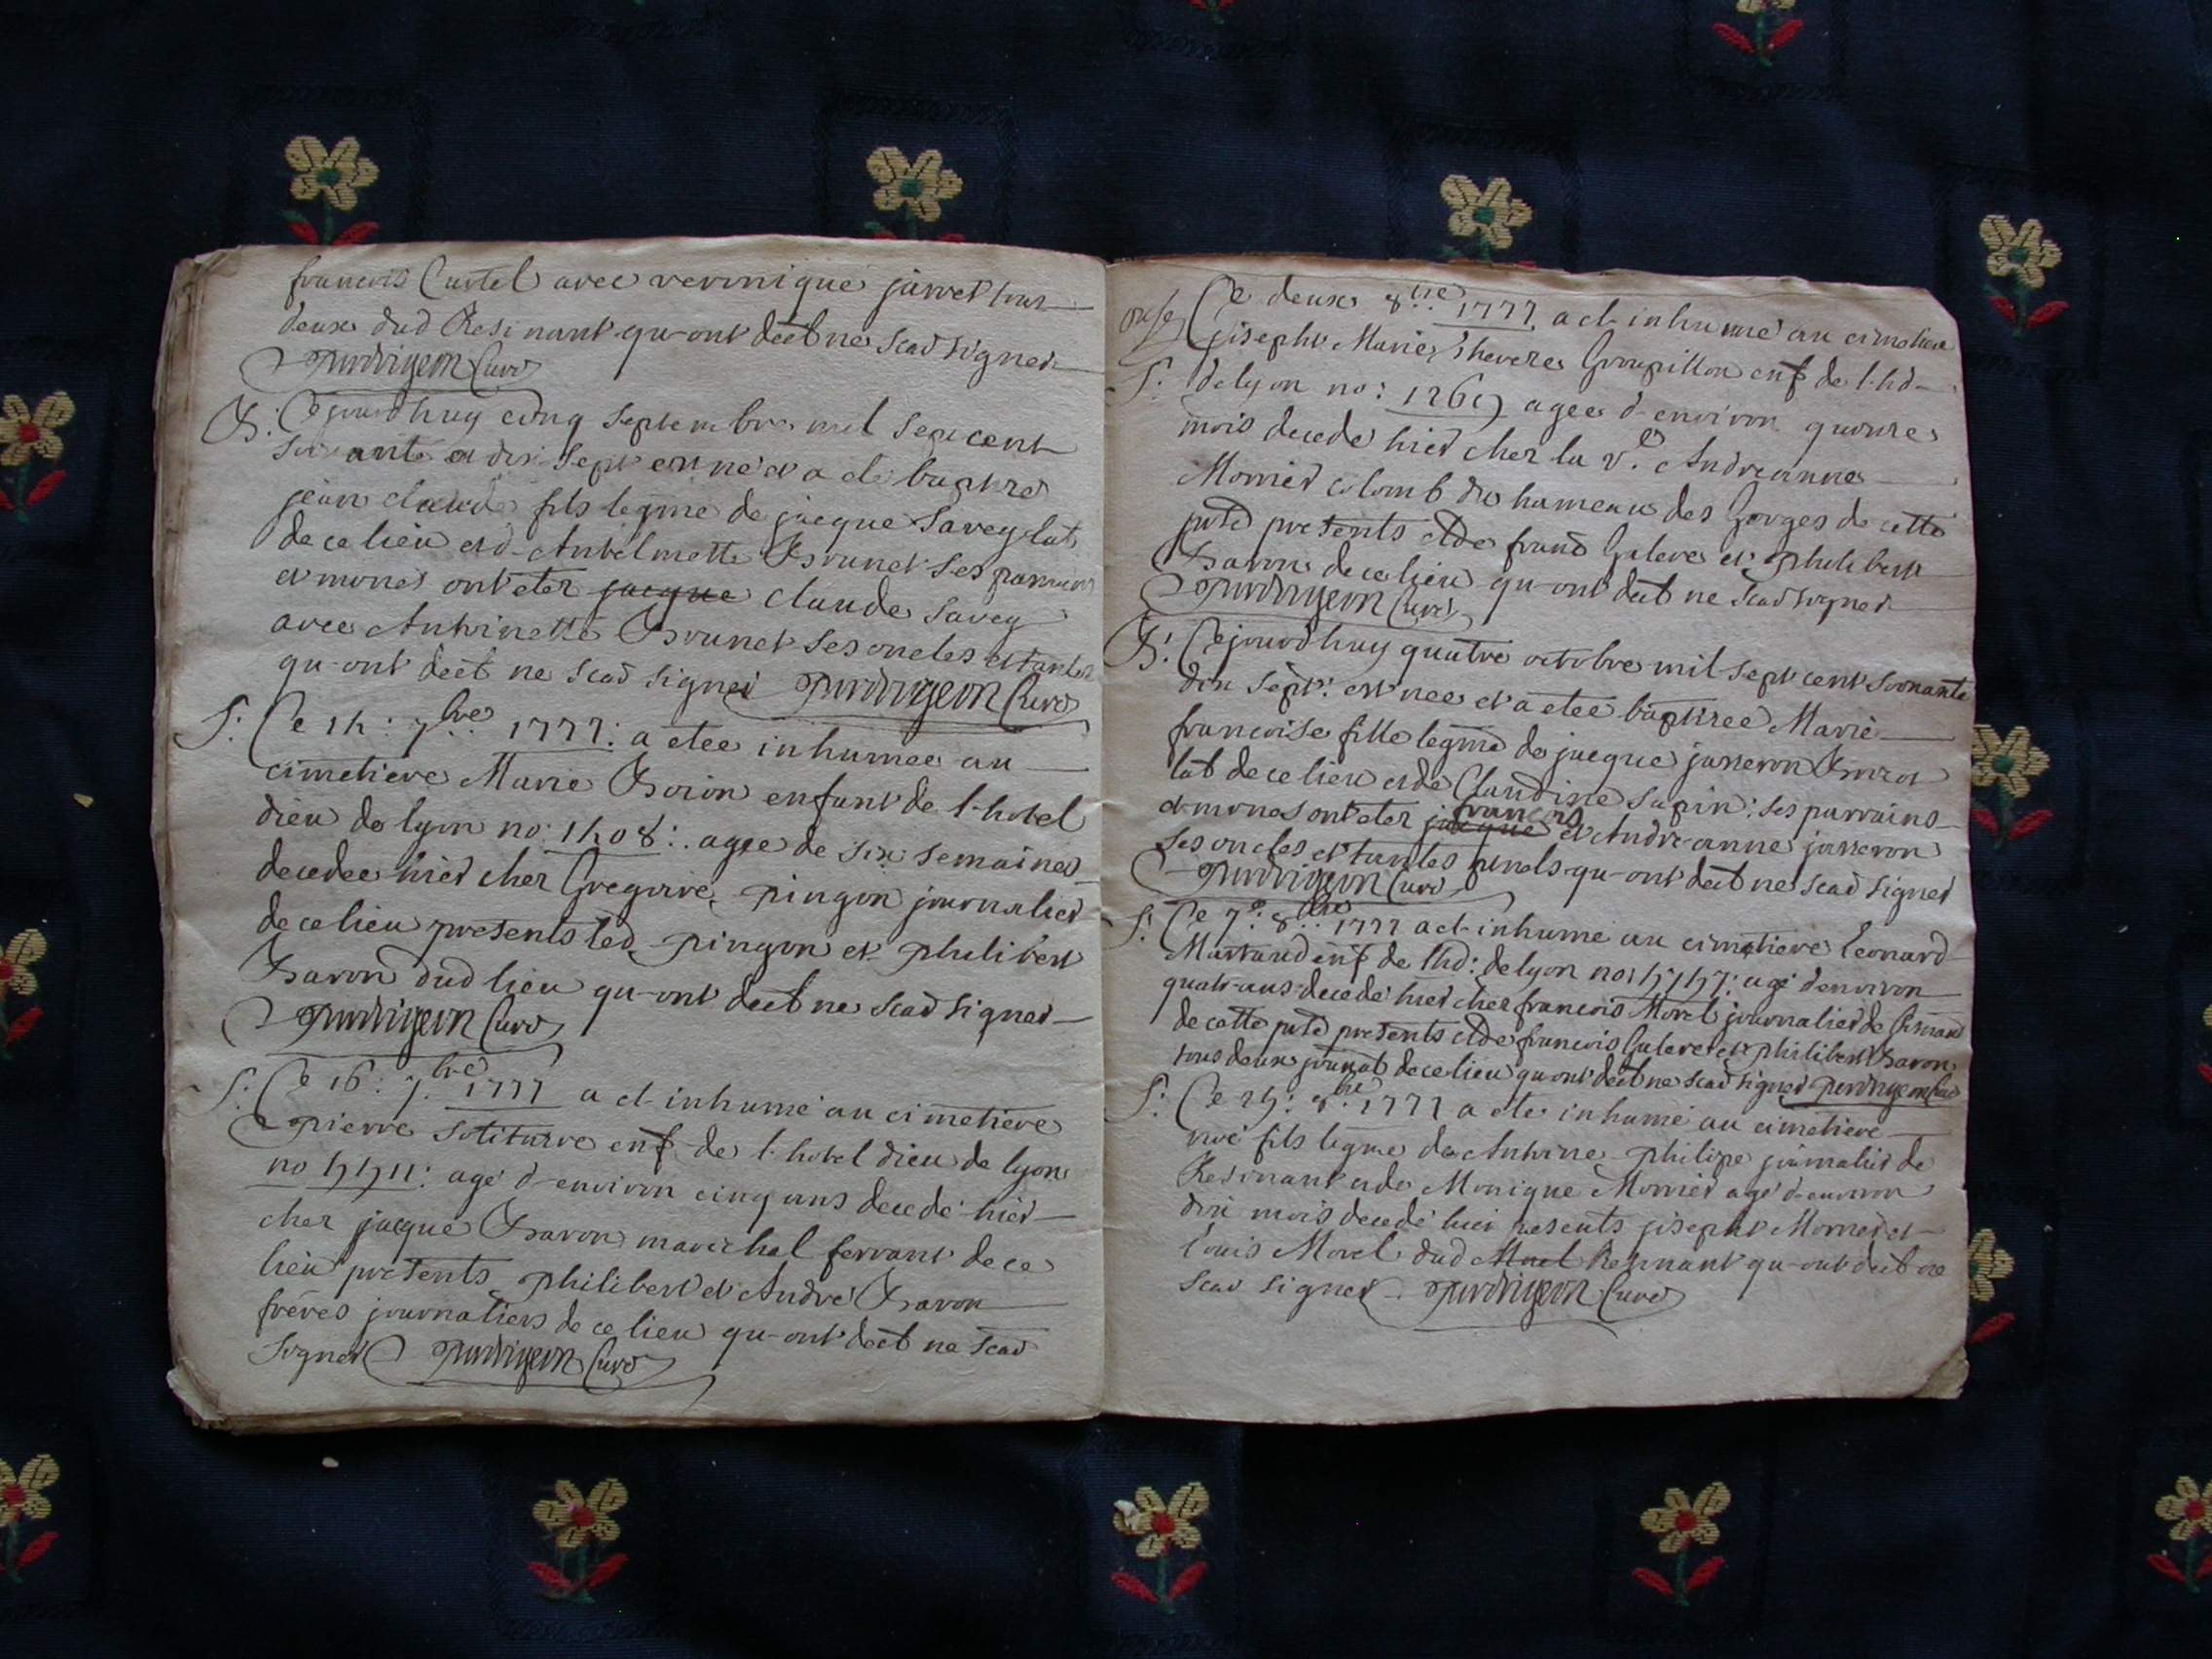 francois Curtel avec veronique jarret tous
deux dud Resinant qu-ont deêt ne scad signer
purdrigeon Curé
B: Cejourdhuy cinq septembre mil sept cent
soixante et dix-sept est né et a eté baptize
jean claude fils legme de jacque Savey lab
de ce lieu et d-Antelmette Brunet ses parrain
et mones ont eter jacque claude Savey
avec Anthoinette Brunet ses oncles et tantes
qu-ont deêt ne scad signer purdrigeon Curé
S: Ce 14: 7bre 1777: a etee inhumee au
cimetiere Marie Boion enfant de l-hotel
dieu de lyon no: 1408: agee de six semaines
decedee hier cher Gregoire pingon journalier
de ce lieu presents led pingon et philibert
Baron dud lieu qu-ont deêt ne scad signer
purdrigeon Curé
S: Ce 16: 7bre 1777 a et inhumé au cimetiere
pierre enf de l-hotel dieu de lyon
no agé d-environ cinq ans decedé hier
cher jacque Baron marechal ferrant de ce
lieu presents philibert et André Baron
freres journaliers de ce lieu qu-ont deêt ne scad
signer purdrigeon Curé
Ce deux 8bre 1777 a et inhumé au cimetiere
joseph Marie enf de l-hd
S: de lyon no: agee d-environ quinze
mois decede hier cher la ve Andreanne
Mornier colomb du hameau des Gorges de cette
psse presents et de franc Galere et philibert
Baron de ce lieu qu-ont deêt ne scad signer
purdrigeon Curé
B: Cejourdhuy quatre octobre mil sept cent soixante
dix sept: est nee et a etee baptizee Marie
francoise fille legme de jacque jasseron
lab de ce lieu et de Claudine Sapin: ses parrains
francois
et mones ont eter jacque et Andre-anne jasseron
ses oncles et tantes qu-ont deêt ne scad signer
purdrigeon Curé
S: Ce 7e 8bre 1777 a et inhume au cimetiere leonard
enf de lhd: de lyon no: agé d'environ
quatr-ans decedé hier cher francois Morel journalier de
de cette psse presents et de francois Galere et philibert Baron
tous deux journal de ce lieu qu-ont deêt ne scad signer purdrigeon Curé
S: Ce 1777 a ete inhumé au cimetiere
fils legme de Anthoine philipe journalier de
Resinant et de Monique Mornier agé d-environ
dix mois decedé hier presents joseph Mornier et
louis Morel dud Morel Resinant qu-ont deêt ne
scad signer purdrigeon Curé